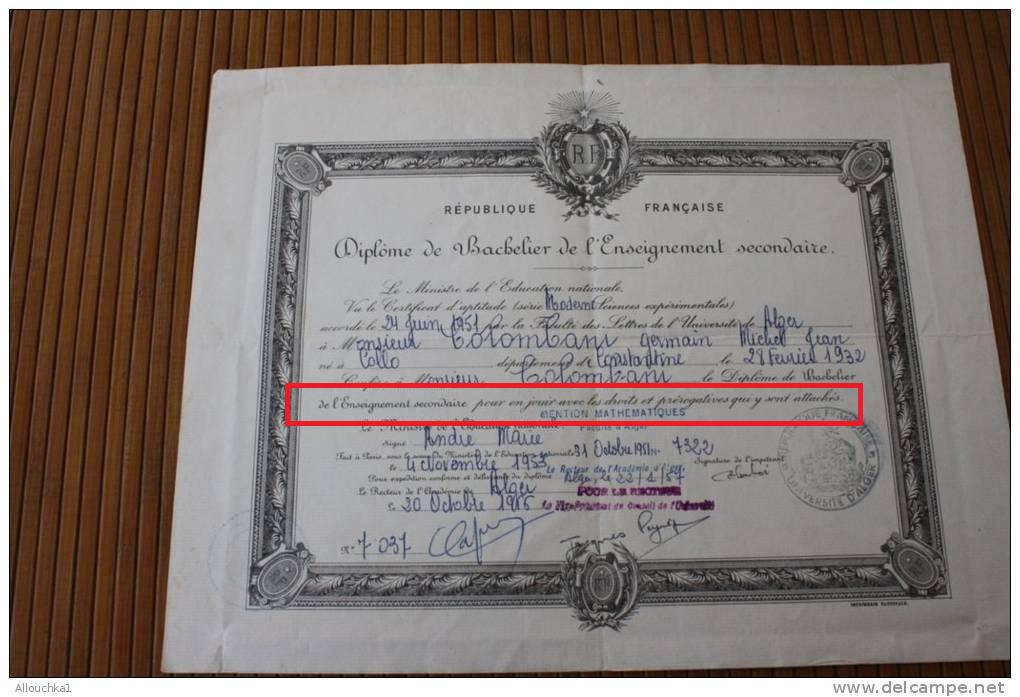 RF
RÉPUBLIQUE FRANÇAISE
Diplôme de Bachelier de l'Enseignement secondaire.
Le Ministre de l'Education nationale,
Vu le Certificat d'aptitude (série Moderne Sciences expérimentales)
accordé le 24 Juin 1951 par la Faculté des Lettres de l'Université de Alger
à Monsieur Colombani Germain Michel Jean
né à Collo département de Constantine, le 28 Février 1932
Confère à Monsieur Colombani le Diplôme de Bachelier
de l'Enseignement secondaire pour en jouir avec les droits et prérogatives qui y sont attachés.
MENTION MATHÉMATIQUES
Le Ministre de l'Education nationale,
Faculté d'Alger
Signé André Marie 31 Octobre 1951 N° 7322
Fait à Paris, sous le sceau du Ministère de l'Education nationale
Signature de l'impétrant
le 4 Novembre 1953
Le Recteur de l'Académie d'Alger
Pour expédition conforme et délivrance du diplôme,
Alger, le 22/1/57
Le Recteur de l'Académie de Alger
POUR LE RECTEUR
le 20 Octobre 1956
Le Vice-Président du Conseil de l'Université
N° 7 037
Jacques
UNIVERSITÉ D'ALGER
IMPRIMERIE NATIONALE.
Allouchka1
delcampe.net